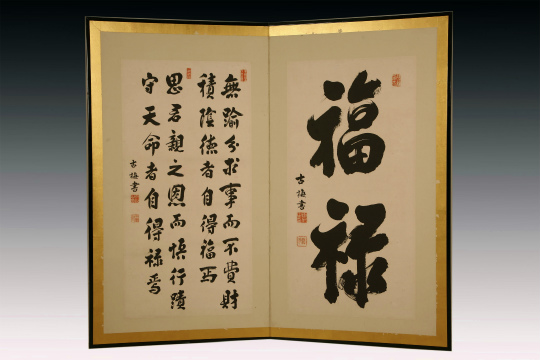 福禄
古梅書
無渝分求事而不費財
積陰徳者自得福焉
思君親之恩而悟行蹟
守天命者自得禄焉
古梅書